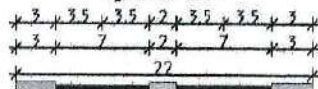 3 3.5 3.5 2 3.5 3.5 3
3 7 2 7 3
22